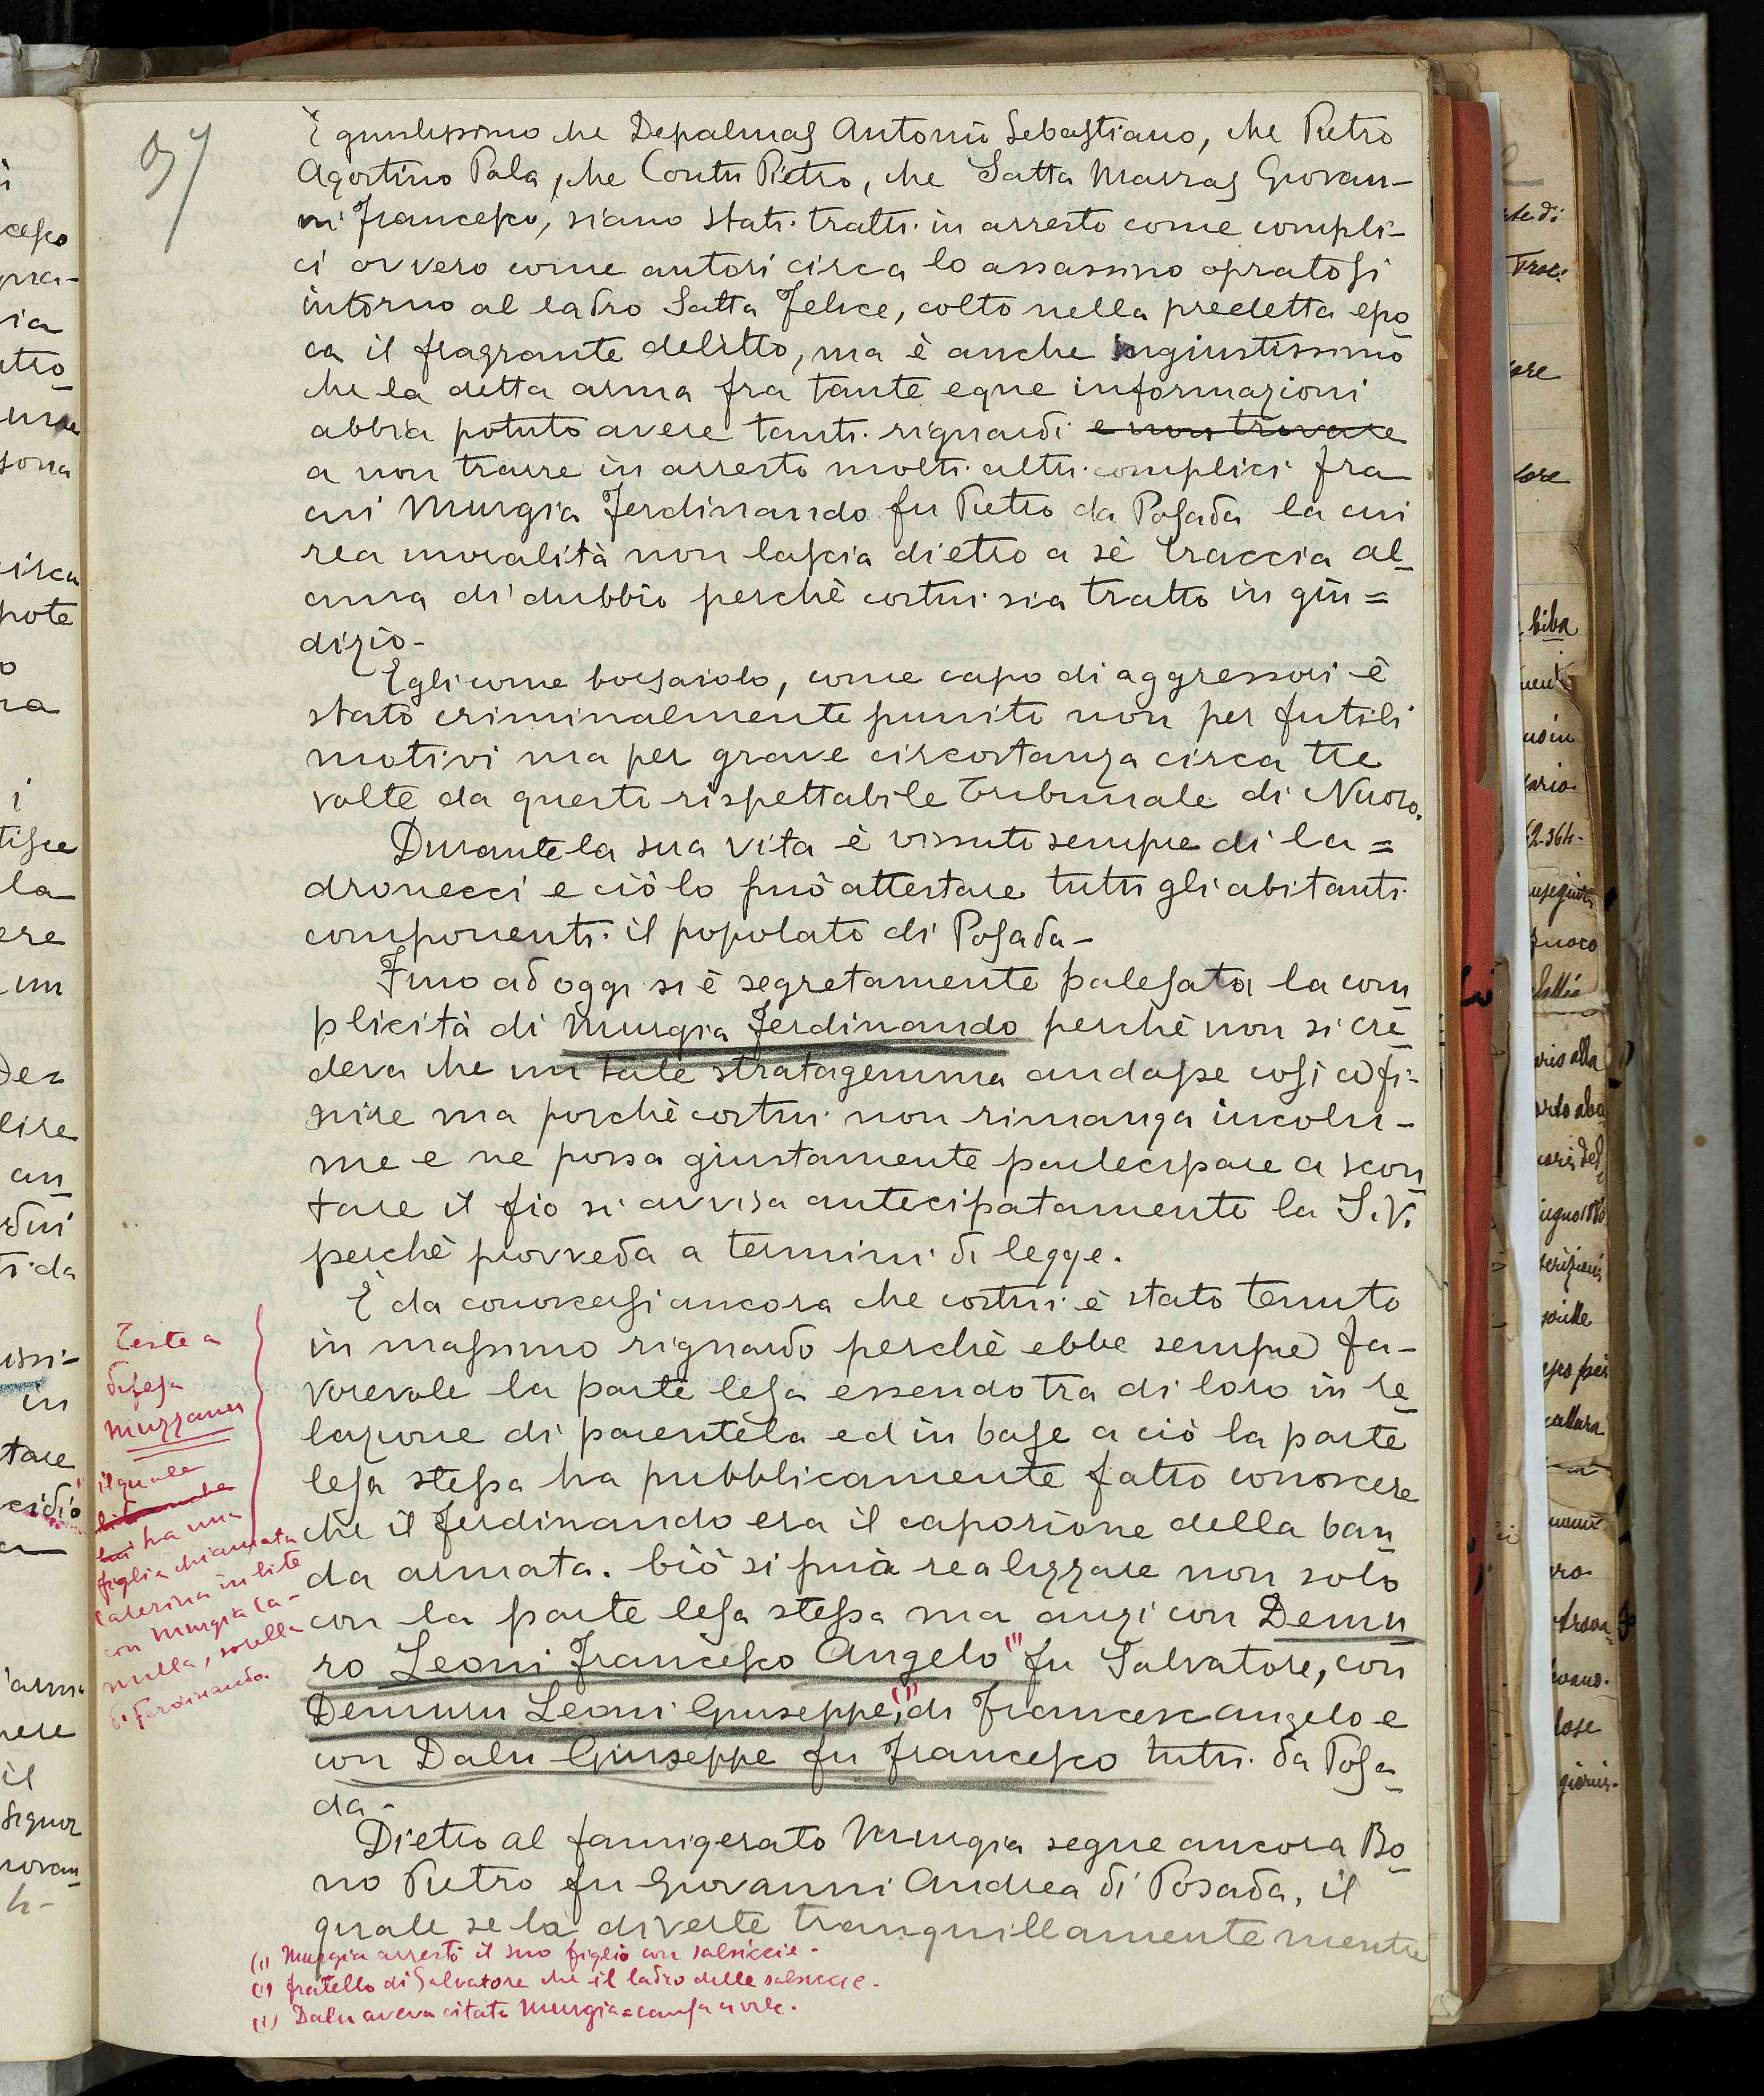 97
È giustissimo che Depalmas Antonio Sebastiano, che Pietro
Agostino Pala, che Contu Pietro, che Satta Marras Giovan-
ni Francesco, siano stati tratti in arresto come compli-
ci ovvero come autori circa lo assassino opratosi
intorno al ladro Satta Felice, colto nella predetta epo
ca il fragrante delitto, ma è anche ingiustissimo
che la detta arma fra tante eque informazioni
abbia potuto avere tanti riguardi e non trovare
a non trarre in arresto molti altri complici fra
cui Murgia Ferdinando fu Pietro da Posada la cui
rea moralità non lascia dietro a sè traccia al_
cuna di dubbio perchè costui sia tratto in giu=
dizio-
Egli come borsaiolo, come capo di aggressori è
stato criminalmente punito non per futili
motivi ma per grave circostanza circa tre
volte da questo rispettabile Tribunale di Nuoro.
Durante la sua vita è vissuto sempre di la=
dronecci e ciò lo può attestare tutti gli abitanti
componenti il popolato di Posada-
Fino ad oggi si è segretamente palesata la com
plicità di Murgia Ferdinando perchè non si cre
deva che un tale stratagemma andasse così a fi-
nire ma perchè costui non rimanga incolu-
me e ne possa giustamente partecipare a scon
tare il fio si avvisa antecipatamente la S.V.
perchè provveda a termini di legge.
È da conoscersi ancora che costui è stato tenuto
in massimo riguardo perchè ebbe sempre fa-
vorevole la parte lesa essendo tra di loro in re
lazione di parentela ed in base a ciò la parte
lesa stessa ha pubblicamente fatto conoscere
che il Ferdinando era il caporione della ban
da armata. Ciò si può realizzare non solo
con la parte lesa stessa ma anzi con Demu
ro Leoni Francesco Angelo (1) fu Salvatore, con
Demuru Leoni Giuseppe, (1) di Francescangelo e
con Dalu Giuseppe fu Francesco tutti da Posa
da-
Dietro al famigerato Murgia segue ancora Bo
no Pietro fu Giovanni Andrea di Posada, il
quale se la diverte tranquillamente mentre
Teste a
difesa
Muzzanu
il quale
ha una
figlia chiamata
Caterina in lite
con Murgia Ca-
milla, sorella
di Ferdinando.
(1) Murgia arrestò il suo figlio con salsiccie-
(1) fratello di Salvatore che il ladro delle salsiccie.
(1) Dalu aveva citato Murgia = causa civile.